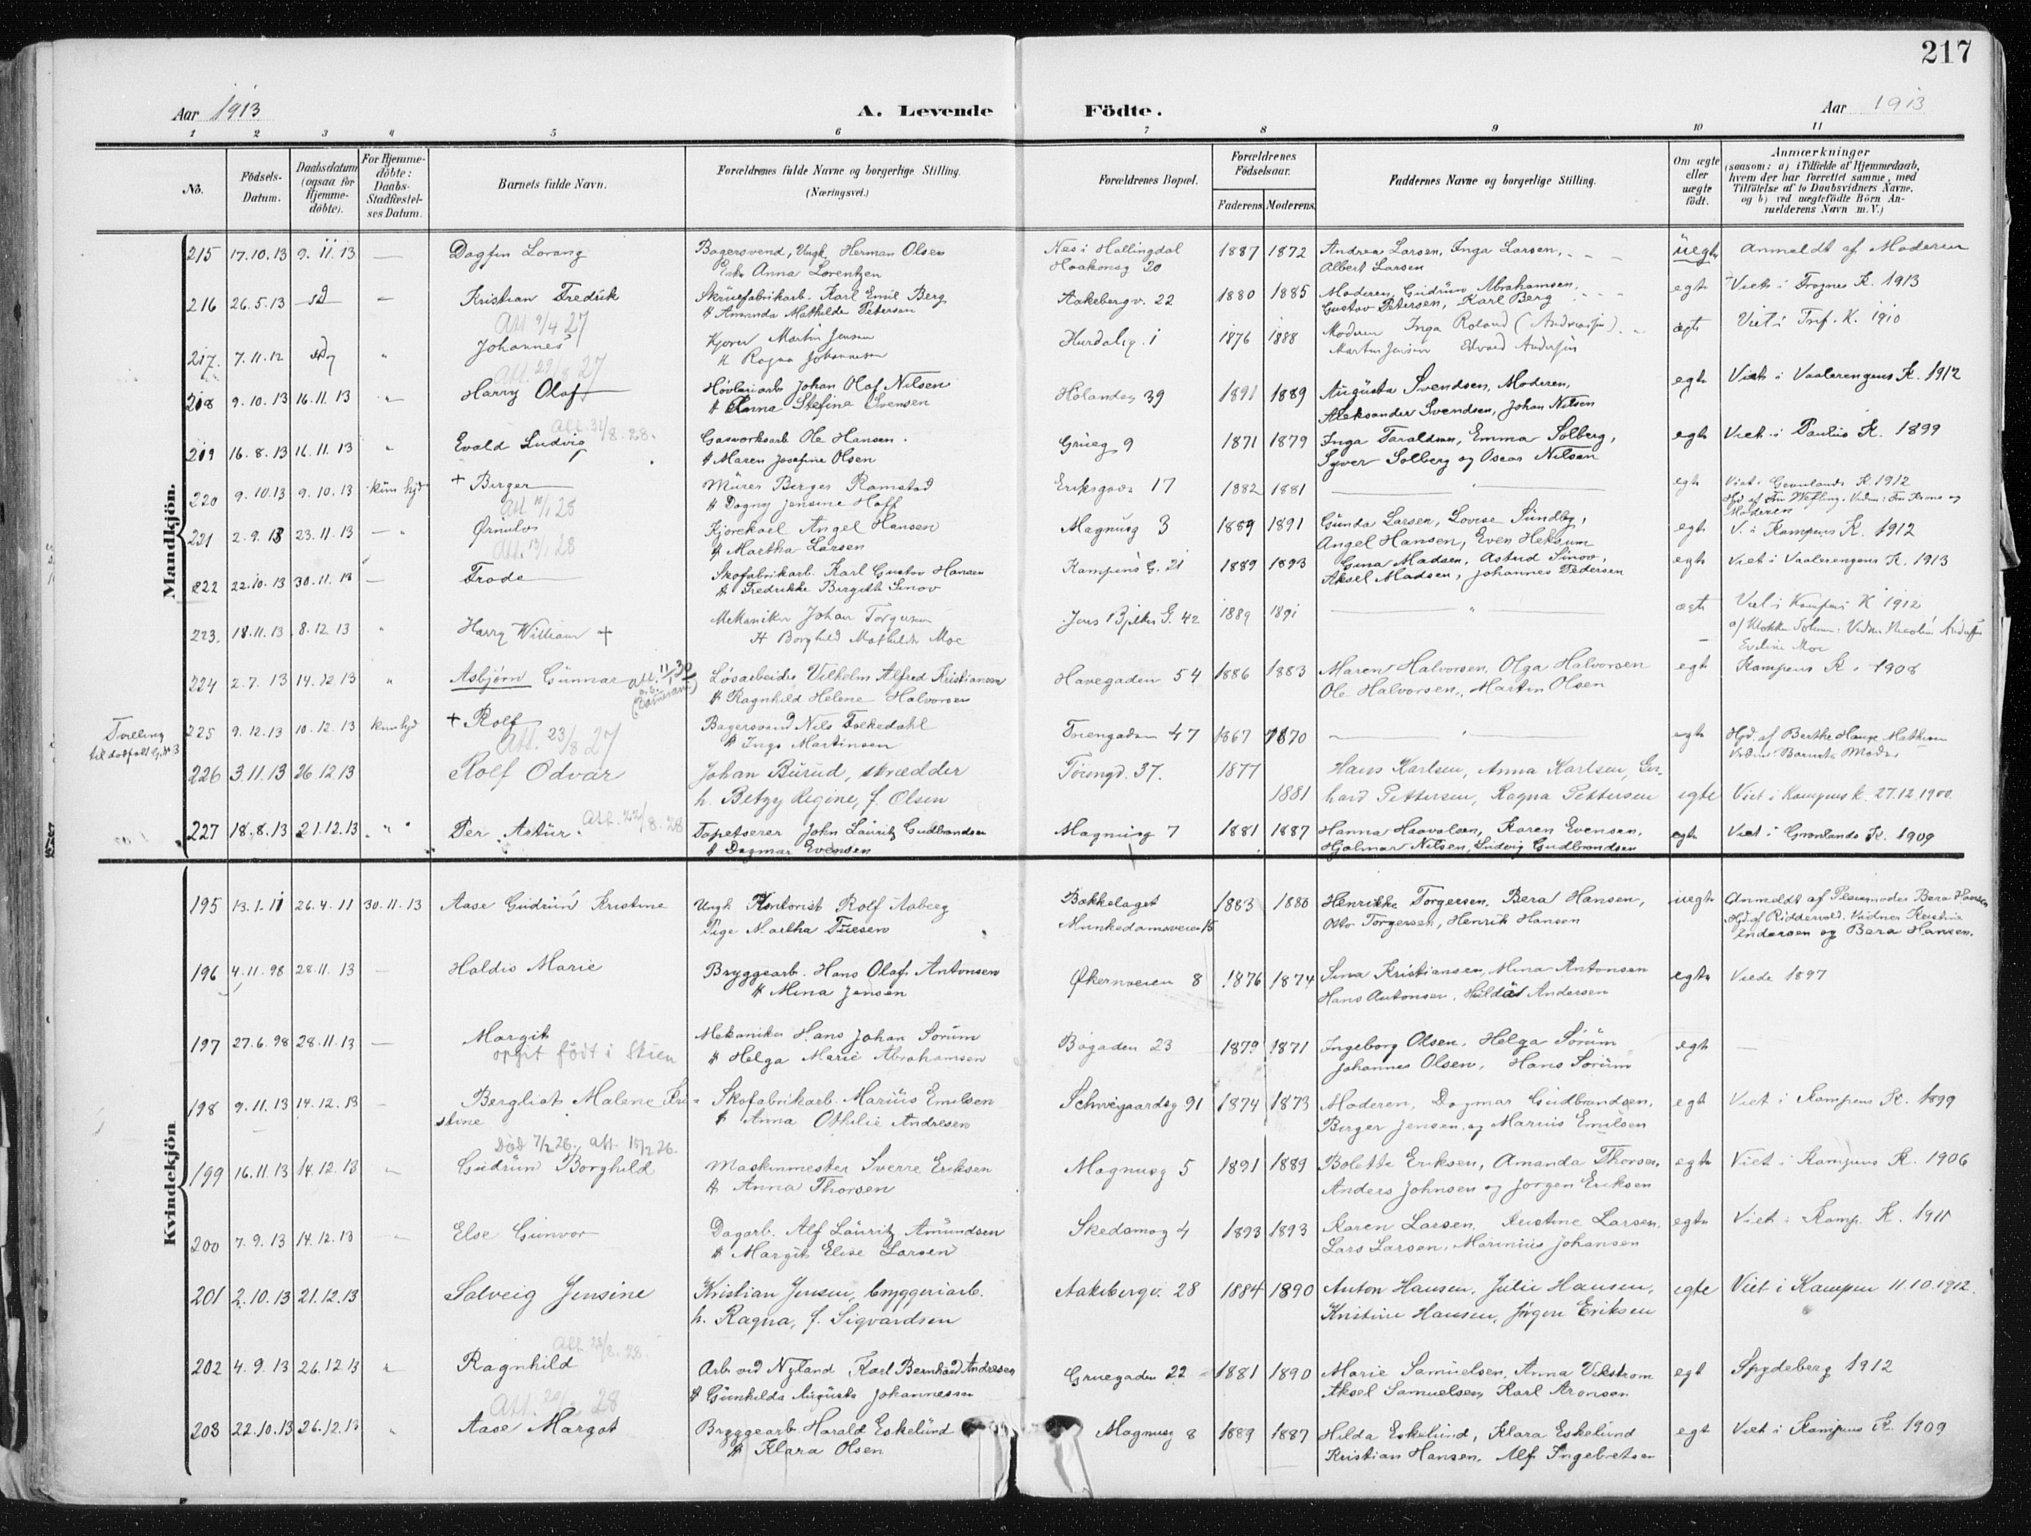 217
Aar 1913 A. Levende Födte. Aar 1913
1 2 3 4 5 6 7 8 9 10 11
No. Födsels-Datum. Daabsdatum (ogsaa for Hjemme-döbte). For Hjemme-döbte: Daabs-Stadfæstel-ses Datum. Barnets fulde Navn. Forældrenes fulde Navne og borgerlige Stilling. (Næringsvei.) Forældrenes Bopæl. Forældrenes Födselsaar. Faderens. Moderens. Faddernes Navne og borgerlige Stilling. Om ægte eller uægte födt. Anmærkninger (saasom: a) i Tilfælde af Hjemmedaab, hvem der har forrettet samme, med Tilföielse af to Daabsvidners Navne, og b) ved uægtefödte Börn An-melderens Navn m. V.)
Mandkjön.
215 17.10.13 9.11.13 — Dagfin Lorang Bagersvend, Ungk. Herman Olsen Nes i Hallingdal 1887 1872 Andrea Larsen, Inga Larsen, uegte Anmeldt af Moderen
Anna Lorentzen Haakonsg 20 Albert Larsen
216 26.5.13 — Kristian Fredrik Skruefabrikarb. Karl Emil Berg Aakebergv. 22 1880 1885 Moderen, Gudrun Abrahamsen, egte Viet i Frogner K. 1913
H Amanda Mathilde Petersen Gustav Petersen, Karl Berg
Att 9/4 27
217. 7.11.12 " Johannes Kjører Martin Jensen Hurdalsg. 1 1876 1888 Moderen Inga Roland ægte Viet i Tref. K. 1910
H Ragna Johannesen Martin Jensen Edvard Andersen
Att. 27
218 9.10.13 16.11.13 " Harry Olaf Høvleriarb Johan Olaf Nilsen Hølandsg 39 1891 1889 Augusta Svendsen, Moderen, egte Viet i Vaalerengens K. 1912
H Anna Stefine Svensen Aleksander Svendsen, Johan Nilsen
Att. 31/8.28.
219 16.8.13 16.11.13 " Evald Ludvig Gasverksarb Ole Hansen. Grueg 9 1871 1879 Inga Taraldsen, Emma Solberg, egte Viet i Paulus K. 1899
H Maren Josefine Olsen Syver Solberg og Oscar Nilsen
220 9.10.13 9.10.13 kun hjd + Birger Murer Berger Ramstad Eriksgade 17 1882 1881 — egte Viet i Grønlands K. 1912
H Dagny Jensine Hoff Moderen
Att 10/1 28
221 2.9.13 23.11.13 — " Ørnulv Kjørekarl Angel Hansen Magnusg 3 1889 1891 Gunda Larsen, Lovise Sundby, egte V. i Kampens K. 1912
H Martha Larsen Angel Hansen, Even Heksum
Att. 13/1 28
222 22.10.13 30.11.13 — Frode Skofabrikarb. Karl Gustav Hansen Kampens G. 21 1889 1893 Gina Madsen, Astrid Sinov, egte Viet i Vaalerengens K. 1913
H Fredrikke Birgith Sinov Aksel Madsen, Johannes Pedersen
223. 18.11.13 8.12.13 " Harry William + Mekaniker Johan Torgersen Jens Bjelkes G. 42 1889 1891 — " — ægte Viet i Kampens K 1912
H Borghild Mathilde Moe af Klokker
Eveline Moe
224 2.7.13 14.12.13 " Asbjørn Gunnar Løsarbeider Vilhelm Alfred Kristiansen Havegaden 54 1886 1883 Maren Halvorsen, Olga Halvorsen egte Kampens K. 1908
H Ragnhild Helene Halvorsen Ole Halvorsen, Martin Olsen
Tvilling til dødfødt G. № 3
225 9.12.13 10.12.13 kun hjd + Rolf Bagersvend Nils Folkedahl Tøiengaden 47 1867 1870 — egte Hjd. af Berthe Hauge Mathisen
H Inga Martinsen Moder
Att. 23/8 27
226 3.11.13 26 12 13 Rolf Odvar Johan Burud, skrædder Tøiengd. 37. 1877 Hans Karlsen, Anna Karlsen, Ger-
h. Betzy Regine, f. Olsen 1881 hard Pettersen, Ragna Pettersen egte Viet i Kampens K. 27.12.1900
Att. 22/8.28
227 18.8.13 21.12.13 " " Per Artur. Tapetserer John Lauritz Gudbrandsen Magnusg 7 1881 1887 Hanna Haavalsen, Karen Evensen, egte Viet i Grønlands K. 1909
H Dagmar Evensen Hjalmar Nilsen, Ludvig Gudbrandsen
Kvindekjön
195 13.1.11 26.4.11 30.11.13 Aase Gudrun Kristine Ungk Kontorist Rolf Aaberg Bækkelaget 1883 1886 Henrikke Torgersen, Bera Hansen, uegte Anmeldt af Pleiemoder Bera Hansen
Pige Martha Tuesen Munkedamsveien 15 Otto Torgersen, Henrik Hansen Hjd. af Riddervold. Vidner Kristine
Andersen og Bera Hansen.
196 4.11.98 28.11.13 — Haldis Marie Bryggearb. Hans Olaf Antonsen Økernveien 8 1876 1874 Sina Kristiansen, Mina Antonsen egte Viede 1897
H Mina Jensen Hans Antonsen, Hilda Andersen
197 27.6.98 28.11.13 — Margit Mekaniker Hans Johan Sørum Bøgaden 23 1879 1871 Ingeborg Olsen, Helga Sørum egte —
opgit født i Skien H Helga Marie Abrahamsen Johannes Olsen, Hans Sørum
198 9.11.13 14.12.13 — Bergliot Malene Kri- Skofabrikarb. Marius Emilsen Schweigaardsg 91 1874 1873 Moderen, Dagmar Gudbrandsen, egte Viet i Kampens K. 1899
stine H Anna Othilie Andresen Birger Jensen og Marius Emilsen
Død 7/2 26, att. 15/2 26.
199 16.11.13 14.12.13 " Gudrun Borghild Maskinmester Sverre Eriksen Magnusg 5 1891 1889 Bolette Eriksen, Amanda Thorsen, egte Viet i Kampens K. 1906
H Anna Thorsen Anders Johnsen og Jørgen Eriksen
200 7.9.13 14.12.13 " Else Gunvor Dagarb. Alf Lauritz Amundsen Skedsmog 4 1893 1893 Karen Larsen, Kristine Larsen, egte Viet i Kamp. K. 1911
H Margit Elise Larsen Lars Larsen, Marinius Johansen
201 2.10.13 21.12.13 Solveig Jensine Kristian Jensen, bryggeriarb. Aakebergv. 28 1884 1890 Anton Hansen, Julie Hansen, egte Viet i Kampen 11.10.1912.
h. Ragna, f. Sigvardsen Kristine Hansen, Jørgen Eriksen
Att. 28/8.28.
202 4.9.13 26.12.13 " Ragnhild Arb ved Nyland Karl Bernhard Andresen Gruegaden 22 1881 1890 Marie Samuelsen, Anna Vikstrøm egt Spydeberg 1912
H Gunhilda Augusta Johannessen Aksel Samuelsen, Karl Aronsen
Att. 28
203 22.10.13 26.12.13 " Aase Margot Bryggearb Harald Eskelund Magnusg 8 1889 1887 Hilda Eskelund, Klara Eskelund egt Viet i Kampens K. 1909
H Klara Olsen Kristian Hansen, Alf Ingebretsen